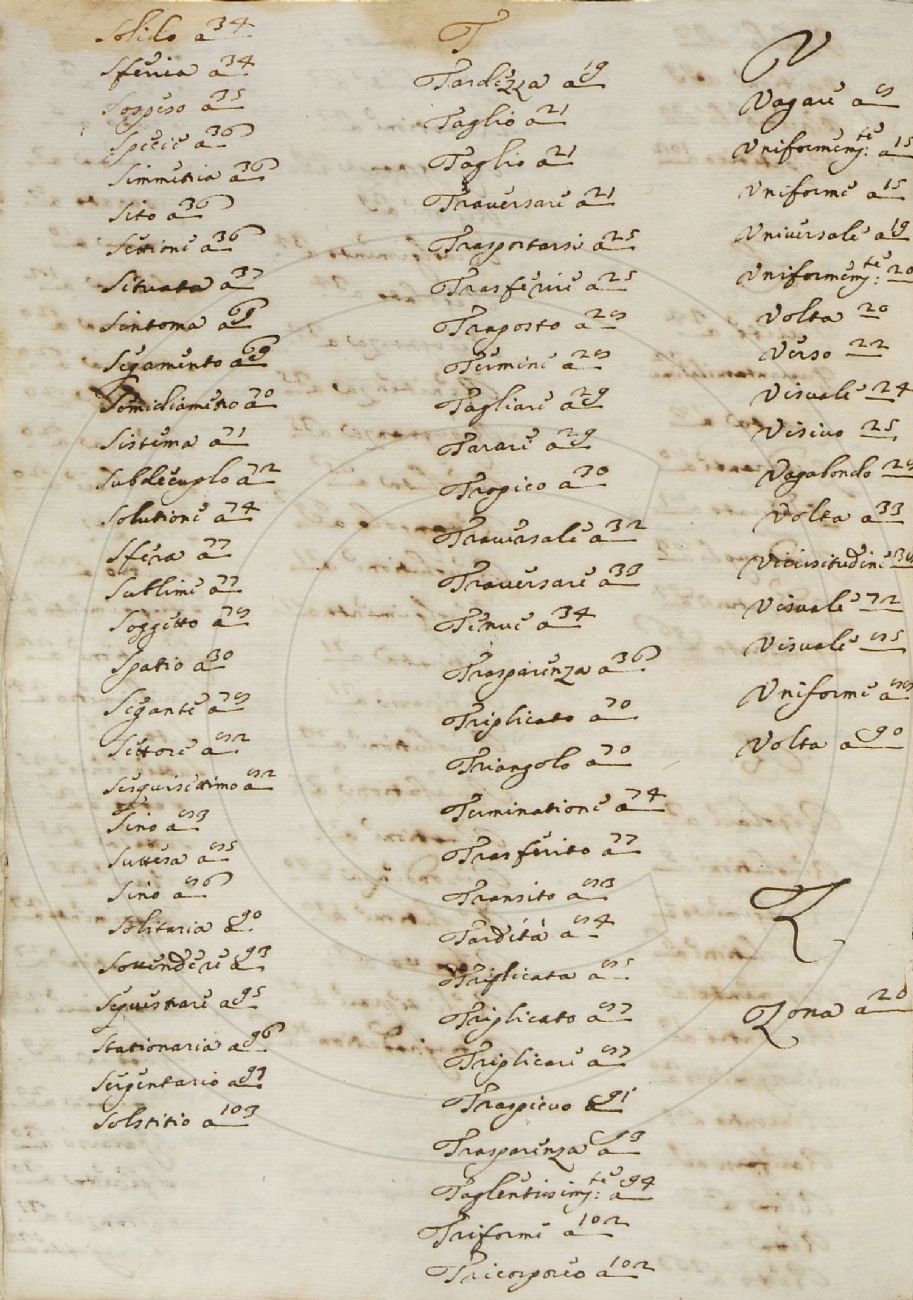 Solido a 34
Sferica a 34
Sospeso a 35
Specie a 36
Simmetria a 36
Sito a 36
Settione a 36
Situata a 37
Sintoma a 69
Segamento a 69
Semidiametro a 70
Sistema a 71
Subdecuplo a 72
Solutione a 74
Sfera a 77
Sublime a 77
Soggetto a 78
Spatio a 30
Segante a 78
Settore a 82
Sesquisettimo a 82
Sino a 83
Suttesa a 85
Sino a 86
Solitaria a 90
Sottendere a 93
Sequestrare a 95
Stationaria a 96
Serpentario a 97
Solstitio a 103
T
Tardezza a 19
Taglio a 21
Taglio a 21
Traversare a 21
Trasportarsi a 25
Trasferire a 25
Trasposto a 28
Termine a 28
Tagliare a 29
Tarare a 29
Tropico a 30
Traversale a 32
Traversare a 33
Tenue a 34
Trasparenza a 36
Triplicato a 70
Triangolo a 70
Terminatione a 74
Trasferito a 77
Transito a 83
Tardità a 84
Triplicata a 85
Triplicato a 87
Triplicare a 87
Traspievo a 91
Trasparenza a 93
Taglentissimte: a 94
Triforme a 102
Tricorporeo a 102
V
Vagare a 8
Vniformemte: a 15
Vniforme a 15
Vniversale a 19
Vniformemte: 20
Volta 20
Verso 22
Visuale 24
Visivo 25
Vagabondo 28
Volta a 33
Vicissitudine 36
Visuale 72
Visuale 85
Vniforme a 88
Volta a 90
Z
Zona a 20